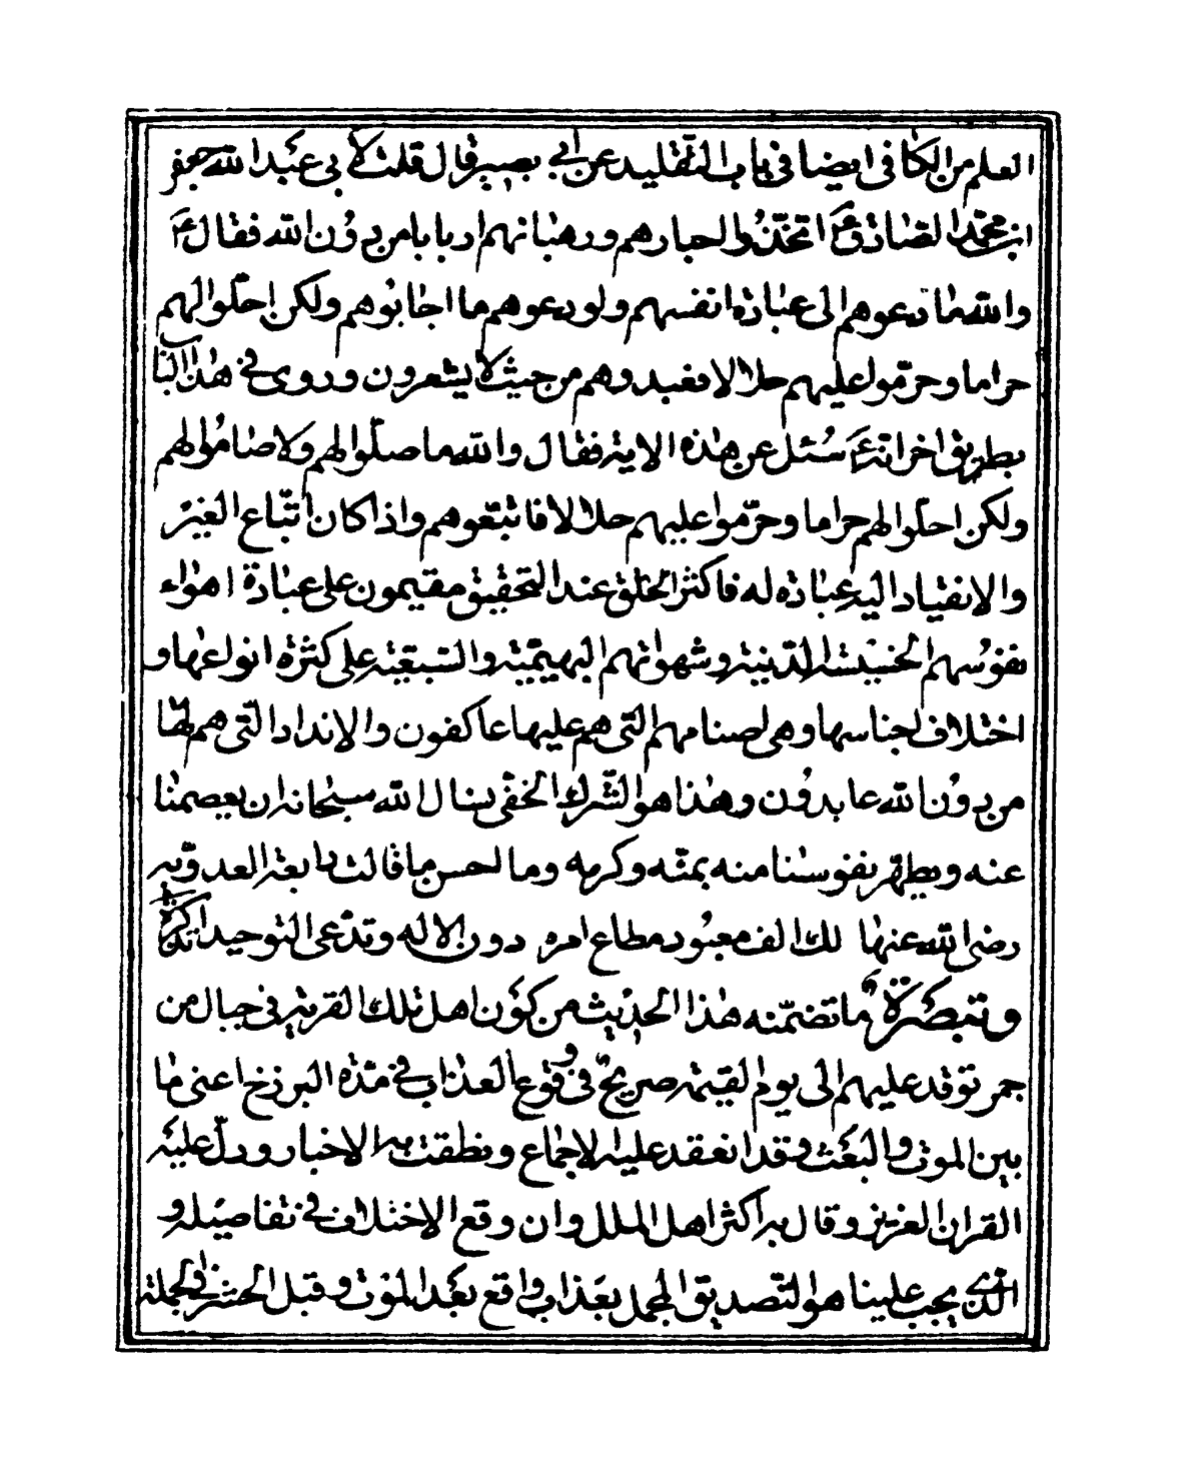 العلم من الكافى ايضا فى باب التقليد عن ابى بصير قال قلت لابى عبد الله جعفر
ابن محمد الصادق ع اتخذوا احبارهم ورهبانهم اربابا من دون الله فقال ع
والله ما دعوهم الى عبادة انفسهم ولو دعوهم ما اجابوهم ولكن احلّوا لهم
حراما وحرّموا عليهم حلالا فعبدوهم من حيث لا يشعرون وروى فى هذا الباب
بطريق اخر انه ع سُئل عن هذه الاية فقال والله ما صلّوا لهم ولا صاموا لهم
ولكن احلّوا لهم حراما وحرّموا عليهم حلالا فاتبّعوهم واذا كان اتّباع الغير
والانقياد اليه عبادة له فاكثر الخلق عند التحقيق مقيمون على عبادة اهواء
نفوسهم الخسيسة الدّنية وشهواتهم البهيميّة والسّبعيّة على كثرة انواعها و
اختلاف اجناسها وهى اصنامهم التى هم عليها عاكفون والانداد التّى هم لها
من دون الله عابدون وهذا هو الشّرك الخفى نسال الله سبحانه ان يعصمنا
عنه ويطهّر نفوسنا منه بمنّه وكرمه وما احسن ما قالت رابعة العدويّه
رضى الله عنها لك الف معبود مطاع امره دون الاله وتدّعى التوحيدا تذكرة
وتبصرة ما تضمّنه هذا الحديث من كون اهل تلك القرية فى جبال من
جمر توقد عليهم الى يوم القيمة صريح فى وقوع العذاب فى مدّة البرزخ اعنى ما
بين الموت والبعث وقد انعقد عليه الاجماع ونطقت به الاخبار ودلّ عليه
القران العزيز وقال به اكثر اهل الملل وان وقع الاختلاف فى تفاصيله و
الذى يجب علينا هو التصديق المجمل بعذاب واقع بعد الموت وقبل الحشر فى الجملة